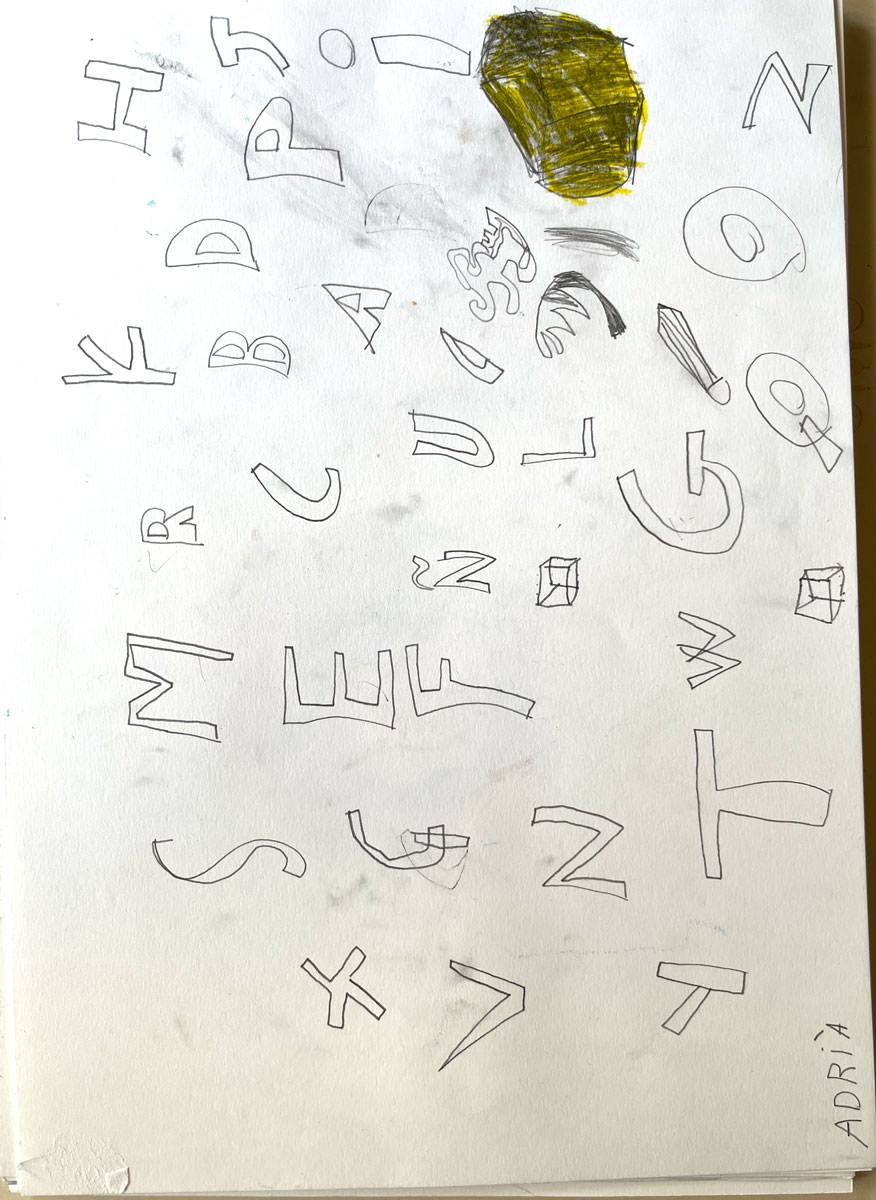 S M R K H
E C B D P J
X G F Ñ U A I
V N L
Y T W G O
Q Z
ADRIÀ